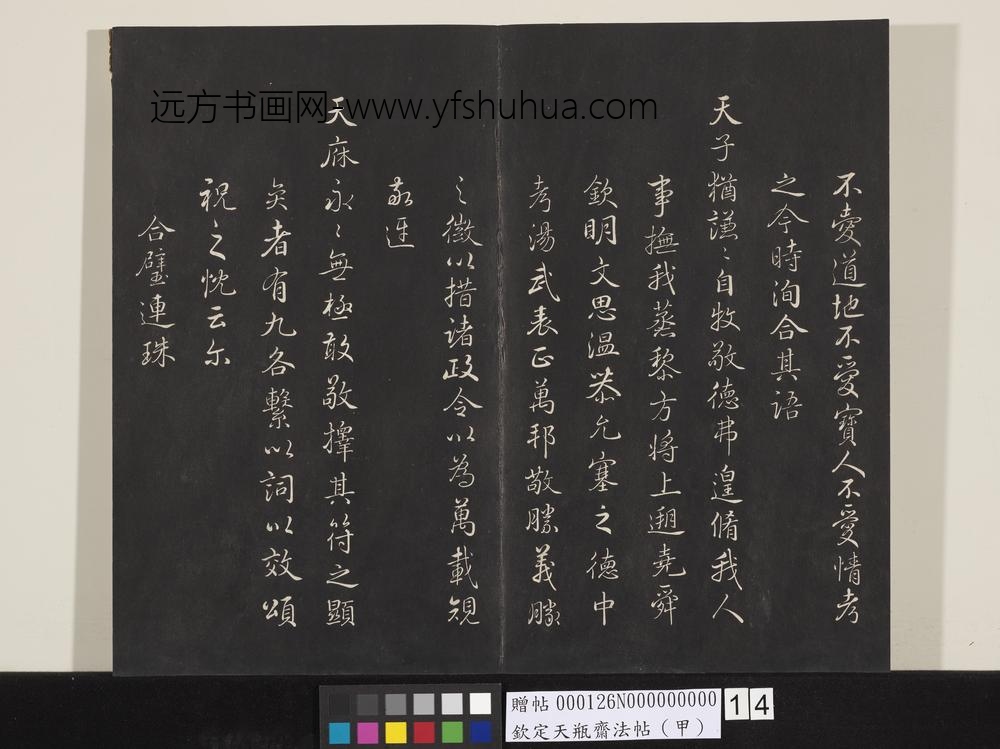 远方书画网-www.yfshuhua.com
不愛道地不愛寶人不愛情考
之今時洵合其語
天子猶謙〻自牧敬德弗遑脩我人
事撫我蒸黎方将上遡堯舜
欽明文思温恭允塞之德中
考湯武表正萬邦敬勝義勝
之徵以措諸政令以為萬載規
敬迓
天庥永〻無極敢敬擇其符之顯
奕者有九各繫以詞以效頌
祝之忱云尔
合璧連珠
贈帖 000126N000000000 14
欽定天瓶齋法帖(甲)